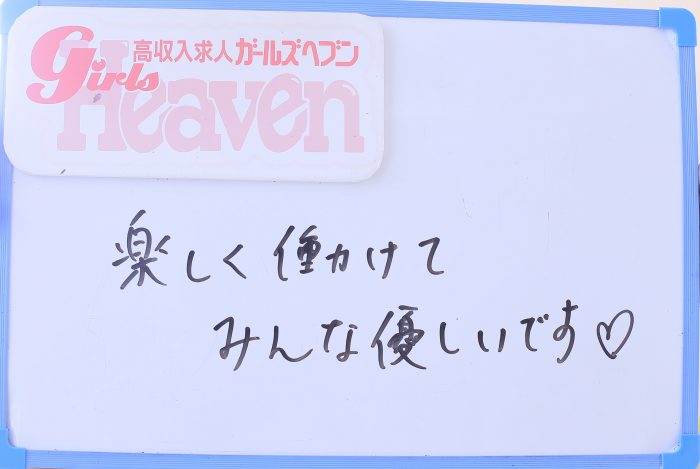 高収入求人ガールズヘブン
Girls
Heaven
楽しく働けて
みんな優しいです♡